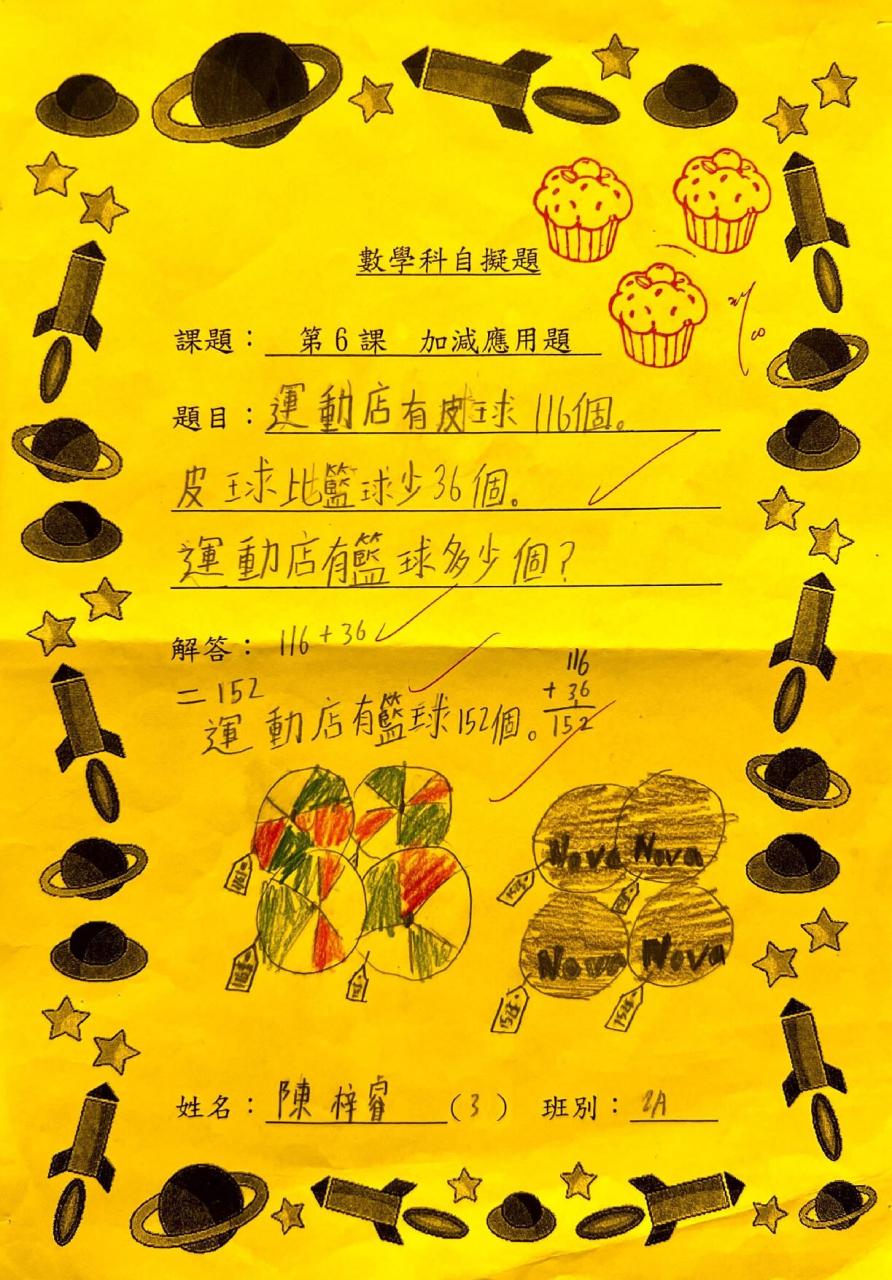 數學科自擬題
課題： 第6課 加減應用題
題目： 運動店有皮球 116個。
皮球比籃球少36個。
運動店有籃球多少個？
解答： 116 + 36
= 152
116
+ 36
152
運動店有籃球152個。
Nova Nova
Nova Nova
152個 152個
姓名： 陳梓睿 (3) 班別： 2A